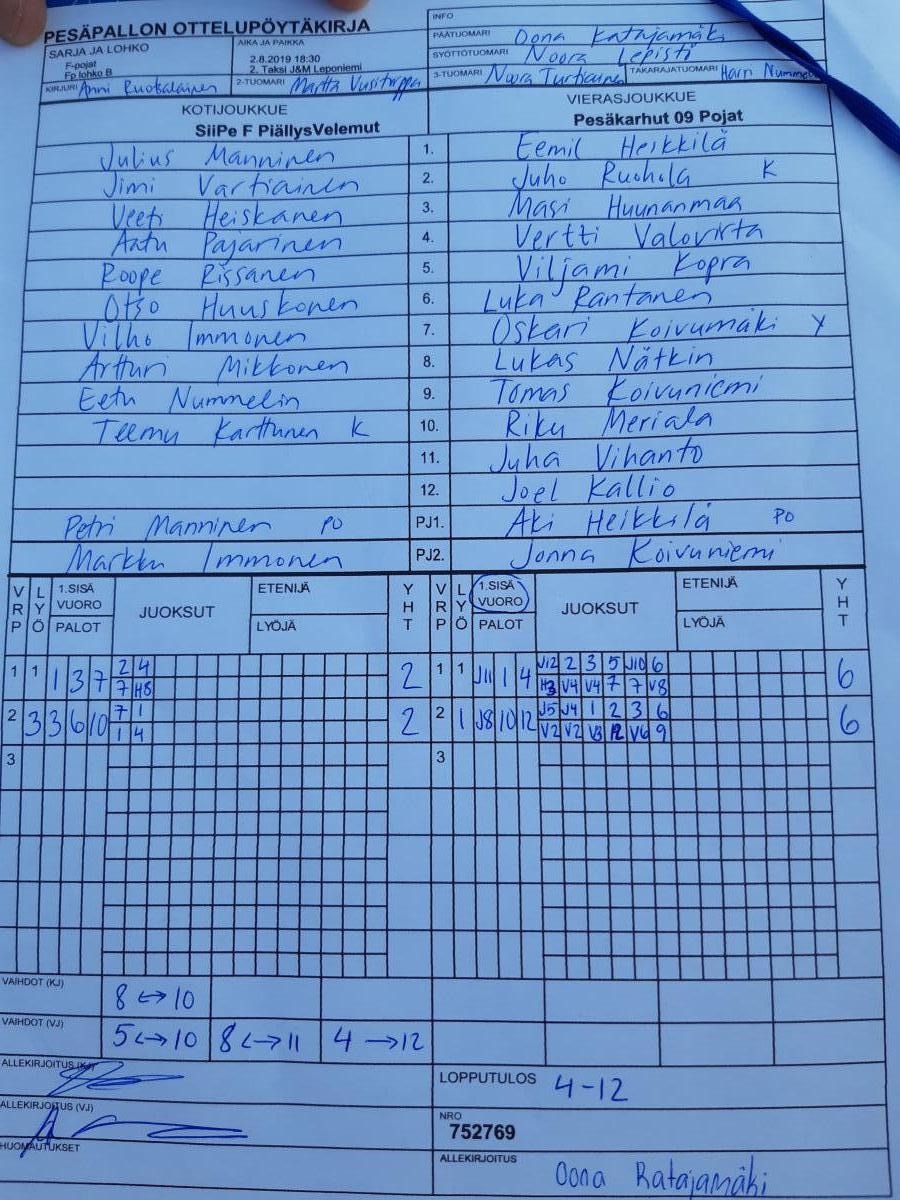 PESÄPALLON OTTELUPÖYTÄKIRJA
INFO
SARJA JA LOHKO
F-pojat
Fp lohko B
AIKA JA PAIKKA
2.8.2019 18:30
2. Taksi J&M Leponiemi
PÄÄTUOMARI Oona Katajamäki
SYÖTTÖTUOMARI Noora Lepistö
KIRJURI Anni Ruokolainen
2-TUOMARI Martta
3-TUOMARI Noora Turtiainen
TAKARAJATUOMARI Harri
KOTIJOUKKUE
SiiPe F PiällysVelemut
VIERASJOUKKUE
Pesäkarhut 09 Pojat
Julius Manninen 1. Eemil Heikkilä
Jimi Vartiainen 2. Juho Ruohola K
Veeti Heiskanen 3. Masi Huunanmaa
Aatu Pajarinen 4. Vertti Valovirta
Roope Rissanen 5. Viljami Kopra
Otso Huuskonen 6. Luka Rantanen
Vilho Immonen 7. Oskari Koivumäki Y
Artturi Mikkonen 8. Lukas Nätkin
Eetu Nummelin 9. Tomas Koivuniemi
Teemu Karttunen K 10. Riku Meriala
11. Juha Vihanto
12. Joel Kallio
Petri Manninen PO PJ1. Aki Heikkilä PO
Markku Immonen PJ2. Jonna Koivuniemi
VRP LYÖ 1.SISÄ VUORO PALOT JUOKSUT ETENIJÄ LYÖJÄ YHT VRP LYÖ 1.SISÄ VUORO PALOT JUOKSUT ETENIJÄ LYÖJÄ YHT
1 1 1 3 7 2 4 2 1 1 J11 1 4 J12 2 3 5 J10 6 6
7 H8 H3 V4 V4 7 7 V8
2 3 3 6 10 7 1 2 2 1 J8 10 12 J5 J4 1 2 3 6 6
1 4 V2 V2 V3 12 V6 9
3 3
VAIHDOT (KJ) 8 ↔ 10
VAIHDOT (VJ) 5 ↔ 10 8 ↔ 11 4 → 12
ALLEKIRJOITUS (KJ)
LOPPUTULOS 4-12
ALLEKIRJOITUS (VJ)
NRO
752769
HUOMAUTUKSET
ALLEKIRJOITUS Oona Katajamäki